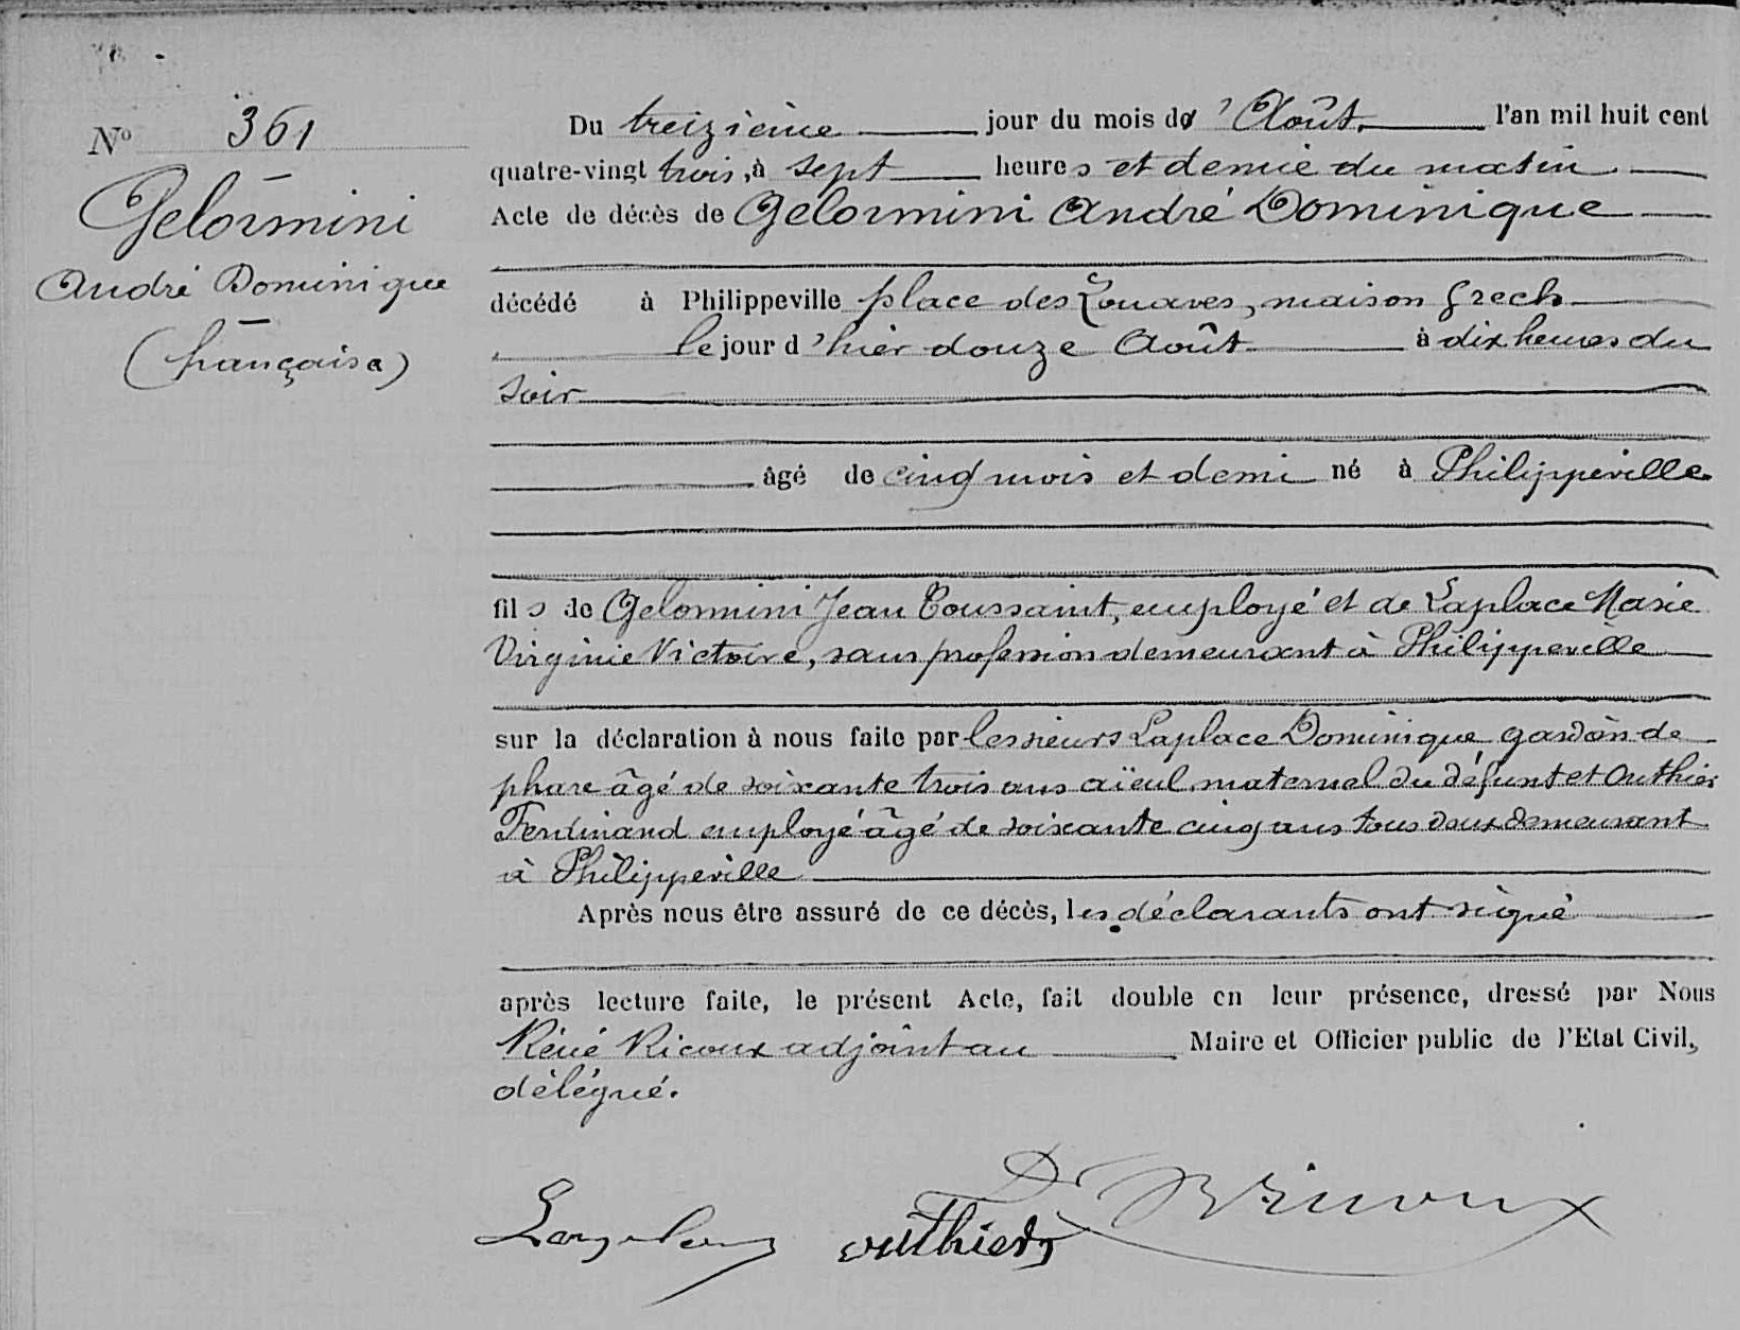 N° 361
Gelormini
André Dominique
(française)
Du treizième jour du mois d'Août l'an mil huit cent
quatre-vingt trois, à sept heures et demie du matin
Acte de décès de Gelormini André Dominique
décédé à Philippeville place des Zouaves, maison Grech
le jour d'hier douze Août à dix heures du
soir
âgé de cinq mois et demi né à Philippeville
fils de Gelormini Jean Toussaint, employé et de Laplace Marie
Virginie Victoire, sans profession demeurant à Philippeville
sur la déclaration à nous faite par les sieurs Laplace Dominique gardien de
phare âgé de soixante trois ans aïeul maternel du défunt et Outhier
Ferdinand employé âgé de soixante cinq ans tous deux demeurant
à Philippeville
Après nous être assuré de ce décès, les déclarants ont signé
après lecture faite, le présent Acte, fait double en leur présence, dressé par Nous
Réné Ricoux adjoint au Maire et Officier public de l'Etat Civil,
délégué.
outhier